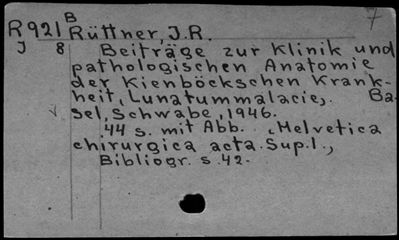 7
R 921 B Rüttner, J.R.
J 8 Beiträge zur Klinik und
pathologischen Anatomie
der Kienböckschen Krank-
heit, Lunatummalacie,. Ba-
sel, Schwabe, 1946.
44 s. mit Abb. (Helvetica
chirurgica acta. Supl.,
Bibliogr. s. 42.